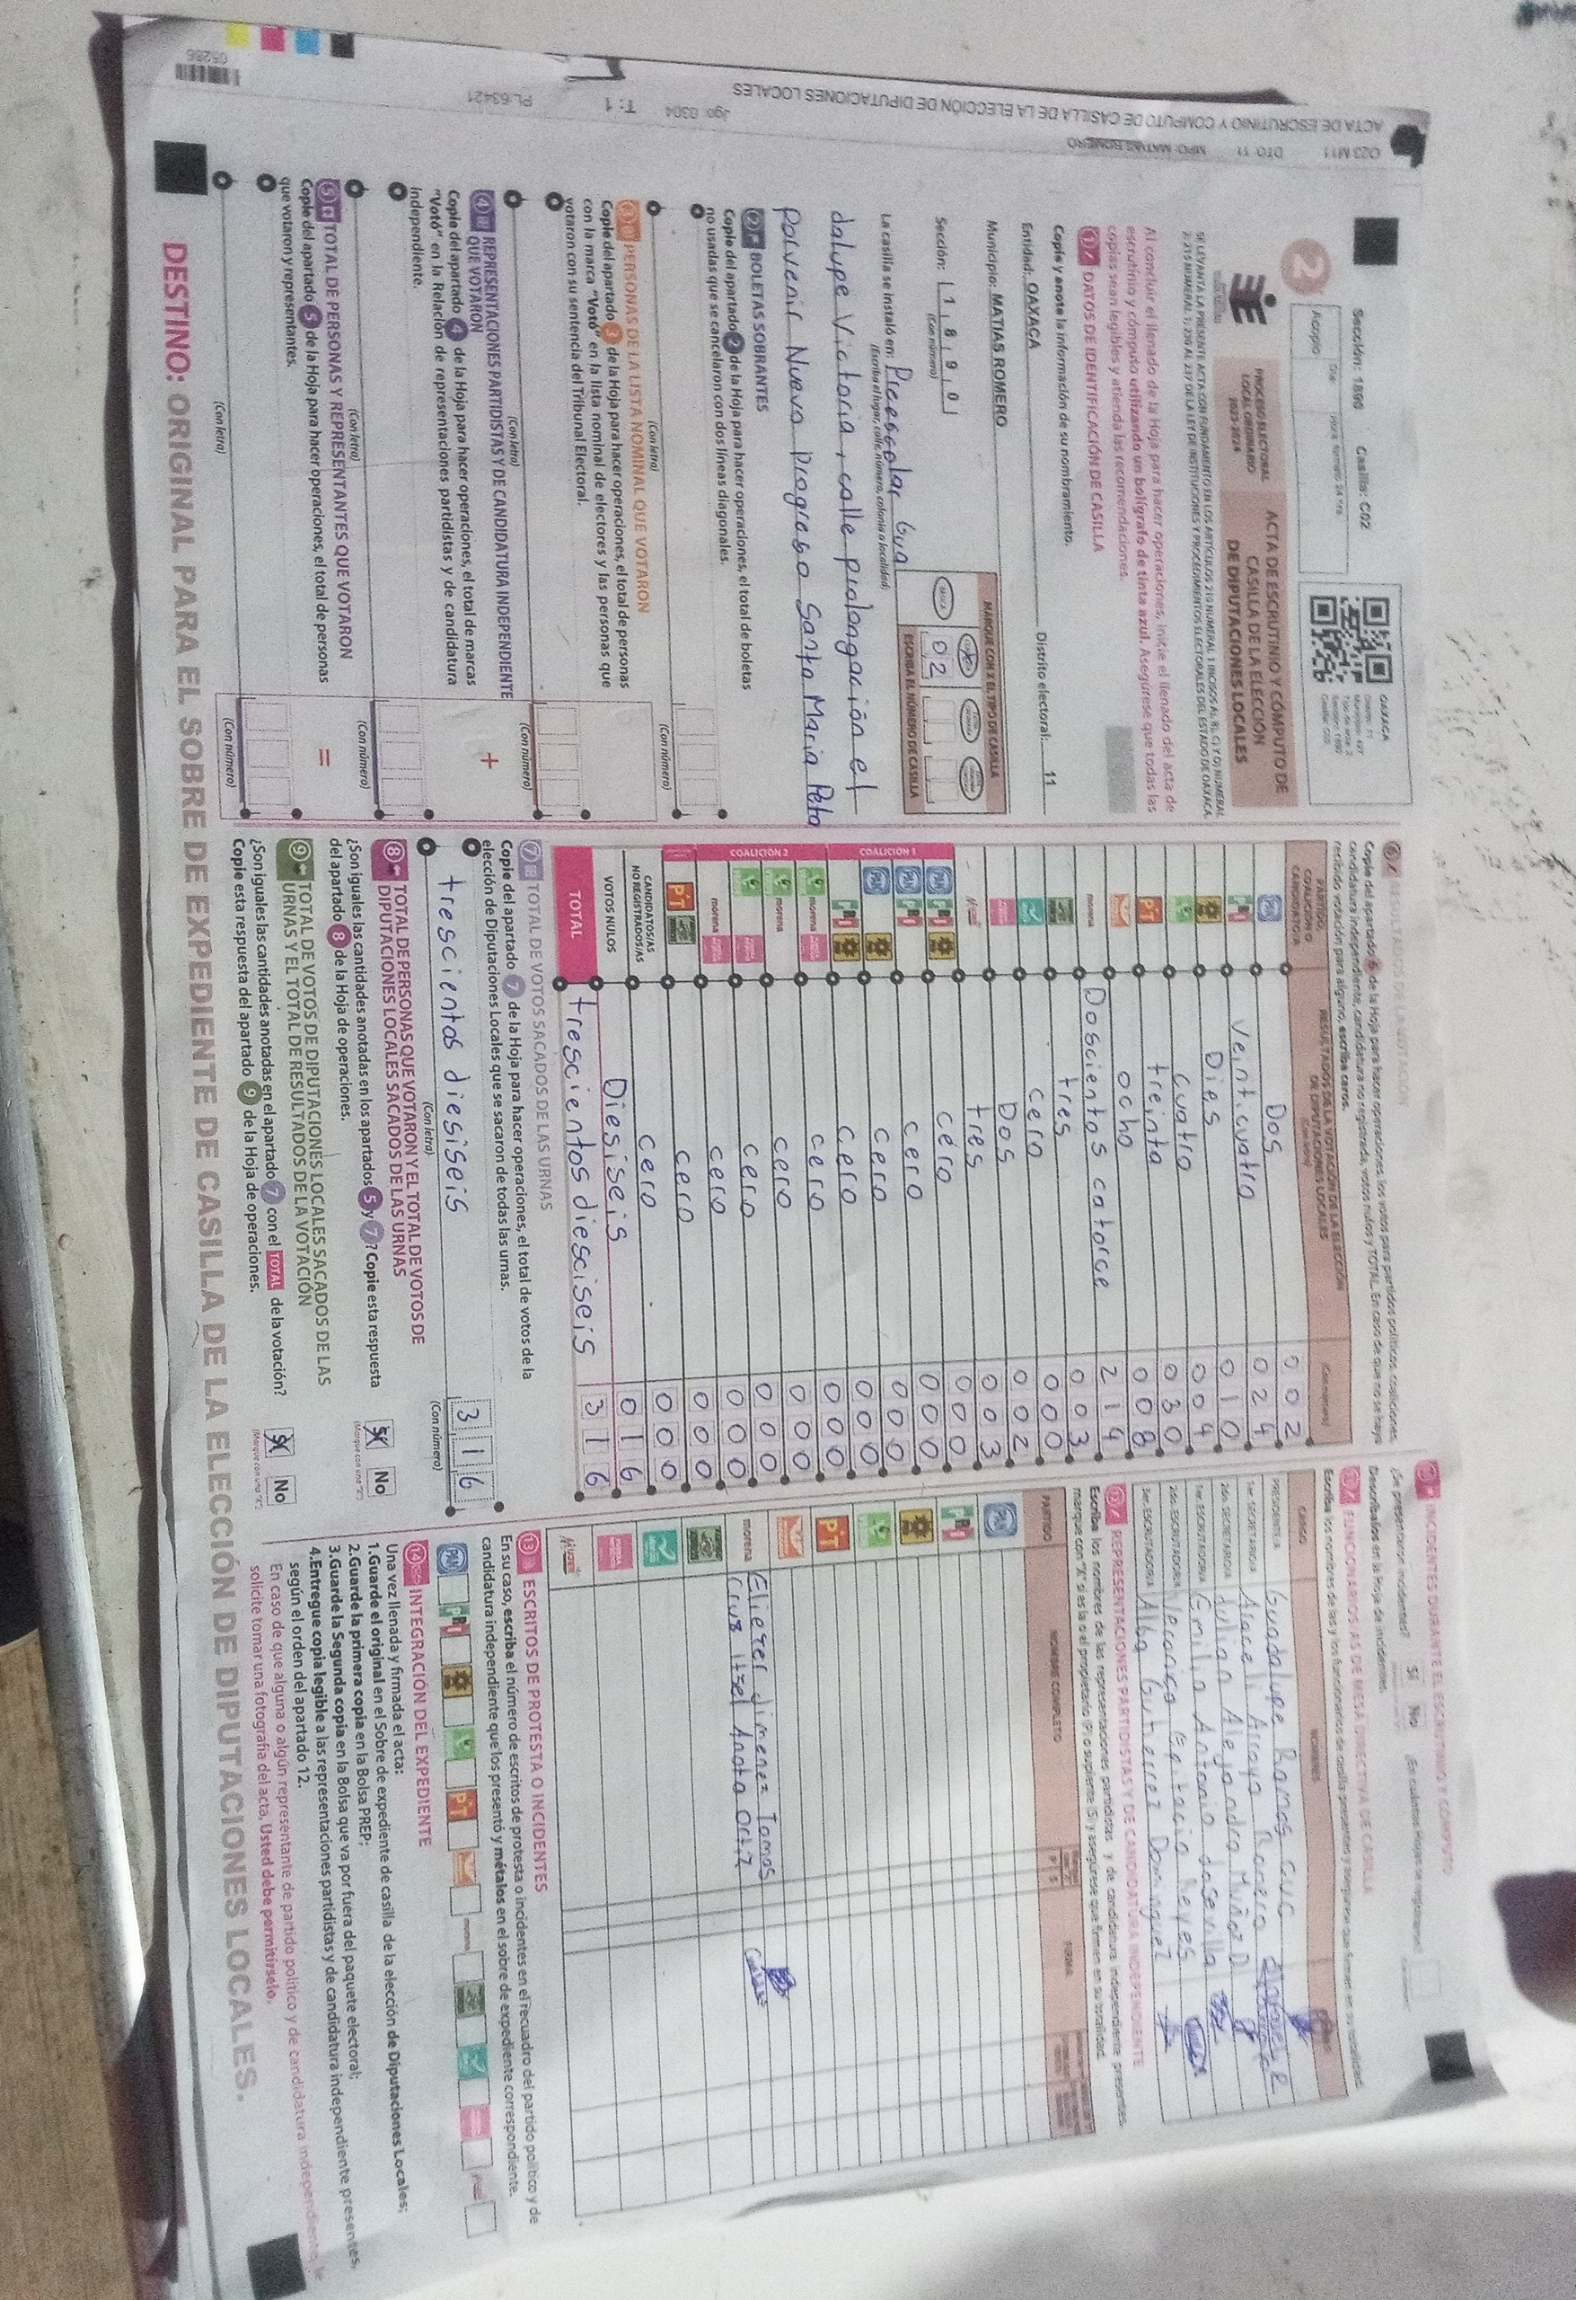 Sección: 1890 Casilla: C02
Acopio
OAXACA
2
PROCESO ELECTORAL
LOCAL ORDINARIO
2023-2024
ACTA DE ESCRUTINIO Y CÓMPUTO DE
CASILLA DE LA ELECCIÓN
DE DIPUTACIONES LOCALES
Al concluir el llenado de la Hoja para hacer operaciones, inicie el llenado del acta de
escrutinio y cómputo utilizando un bolígrafo de tinta azul. Asegúrese que todas las
copias sean legibles y atienda las recomendaciones.
1 DATOS DE IDENTIFICACIÓN DE CASILLA
Copie y anote la información de su nombramiento.
Entidad: OAXACA Distrito electoral: 11
Municipio: MATIAS ROMERO
Sección: 1 8 9 0
(Con número)
MARQUE CON X EL TIPO DE CASILLA
BÁSICA
ESCRIBA EL NÚMERO DE CASILLA
0 2
La casilla se instaló en: Preescolar Gua
(Escriba el lugar, calle, número, colonia o localidad)
dalupe Victoria, calle prolongación el
Porvenir Nuevo Progreso Santa Maria Peta
2 BOLETAS SOBRANTES
Copie del apartado 2 de la Hoja para hacer operaciones, el total de boletas
no usadas que se cancelaron con dos líneas diagonales.
(Con letra) (Con número)
3 PERSONAS DE LA LISTA NOMINAL QUE VOTARON
Copie del apartado 3 de la Hoja para hacer operaciones, el total de personas
con la marca "Votó" en la lista nominal de electores y las personas que
votaron con su sentencia del Tribunal Electoral.
(Con letra) (Con número)
4 REPRESENTACIONES PARTIDISTAS Y DE CANDIDATURA INDEPENDIENTE
QUE VOTARON
+
Copie del apartado 4 de la Hoja para hacer operaciones, el total de marcas
"Votó" en la Relación de representaciones partidistas y de candidatura
independiente.
(Con letra) (Con número)
5 TOTAL DE PERSONAS Y REPRESENTANTES QUE VOTARON
=
Copie del apartado 5 de la Hoja para hacer operaciones, el total de personas
que votaron y representantes.
(Con letra) (Con número)
6 RESULTADOS DE LA VOTACIÓN
Copie del apartado 6 de la Hoja para hacer operaciones, los votos para partidos políticos, coaliciones,
candidatura independiente, candidatura no registrada, votos nulos y TOTAL. En caso de que no se haya
recibido votación para alguno, escriba ceros.
PARTIDO,
COALICIÓN O
CANDIDATURA
RESULTADOS DE LA VOTACIÓN DE LA ELECCIÓN
DE DIPUTACIONES LOCALES
(Con letra)
(Con número)
PAN Dos 0 0 2
PRI Veinticuatro 0 2 4
Dies 0 1 0
cuatro 0 0 4
PT treinta 0 3 0
ocho 0 0 8
morena Doscientos catorce 2 1 4
tres 0 0 3
cero 0 0 0
Dos 0 0 2
tres 0 0 3
COALICIÓN 1
PAN PRI cero 0 0 0
PAN PRI cero 0 0 0
PAN cero 0 0 0
PRI cero 0 0 0
COALICIÓN 2
morena cero 0 0 0
morena cero 0 0 0
cero 0 0 0
morena cero 0 0 0
PT cero 0 0 0
CANDIDATOS/AS
NO REGISTRADOS/AS
cero 0 0 0
VOTOS NULOS Diesiseis 0 1 6
TOTAL trescientos diesciseis 3 1 6
7 TOTAL DE VOTOS SACADOS DE LAS URNAS
Copie del apartado 7 de la Hoja para hacer operaciones, el total de votos de la
elección de Diputaciones Locales que se sacaron de todas las urnas.
trescientos diesiseis 3 1 6
(Con letra) (Con número)
8 TOTAL DE PERSONAS QUE VOTARON Y EL TOTAL DE VOTOS DE
DIPUTACIONES LOCALES SACADOS DE LAS URNAS
¿Son iguales las cantidades anotadas en los apartados 5 y 7? Copie esta respuesta
del apartado 8 de la Hoja de operaciones.
Sí No
(Marque con una "X")
9 TOTAL DE VOTOS DE DIPUTACIONES LOCALES SACADOS DE LAS
URNAS Y EL TOTAL DE RESULTADOS DE LA VOTACIÓN
¿Son iguales las cantidades anotadas en el apartado 7 con el TOTAL de la votación?
Copie esta respuesta del apartado 9 de la Hoja de operaciones.
Sí No
(Marque con una "X")
INCIDENTES DURANTE EL ESCRUTINIO Y CÓMPUTO
¿Se presentaron incidentes? Sí No
Descríbalos en la Hoja de incidentes.
FUNCIONARIOS/AS DE MESA DIRECTIVA DE CASILLA
CARGO NOMBRES
PRESIDENTE/A Guadalupe Ramos Cruz
1er. SECRETARIO/A Araceli Arroyo Romero
2do. SECRETARIO/A Julian Alejandro Muñoz D
1er. ESCRUTADOR/A Emilia Antonio
2do. ESCRUTADOR/A Veronica Epitacio Reyes
3er. ESCRUTADOR/A Alba Gutierrez Dominguez
REPRESENTACIONES PARTIDISTAS Y DE CANDIDATURA INDEPENDIENTE
Escriba los nombres de las representaciones partidistas y de candidatura independiente presentes,
marque con "X" si es la o el propietario (P) o suplente (S) y asegúrese que firmen en su totalidad.
PARTIDO NOMBRE COMPLETO P S FIRMA
PAN
PRI
PT
morena Eliezer Jimenez Tomas
Cruz Itzel Anota Ortiz
13 ESCRITOS DE PROTESTA O INCIDENTES
En su caso, escriba el número de escritos de protesta o incidentes en el recuadro del partido político y de
candidatura independiente que los presentó y métalos en el sobre de expediente correspondiente.
PAN PRI PT morena
14 INTEGRACIÓN DEL EXPEDIENTE
Una vez llenada y firmada el acta:
1.Guarde el original en el Sobre de expediente de casilla de la elección de Diputaciones Locales;
2.Guarde la primera copia en la Bolsa PREP;
3.Guarde la Segunda copia en la Bolsa que va por fuera del paquete electoral;
4.Entregue copia legible a las representaciones partidistas y de candidatura independiente presentes,
según el orden del apartado 12.
En caso de que alguna o algún representante de partido político y de candidatura independiente, le
solicite tomar una fotografía del acta, Usted debe permitírselo.
DESTINO: ORIGINAL PARA EL SOBRE DE EXPEDIENTE DE CASILLA DE LA ELECCIÓN DE DIPUTACIONES LOCALES.
ACTA DE ESCRUTINIO Y CÓMPUTO DE CASILLA DE LA ELECCIÓN DE DIPUTACIONES LOCALES
DTO. 11 MPO: MATIAS ROMERO
Jgo: 0304 T: 1 PL:63421
05286